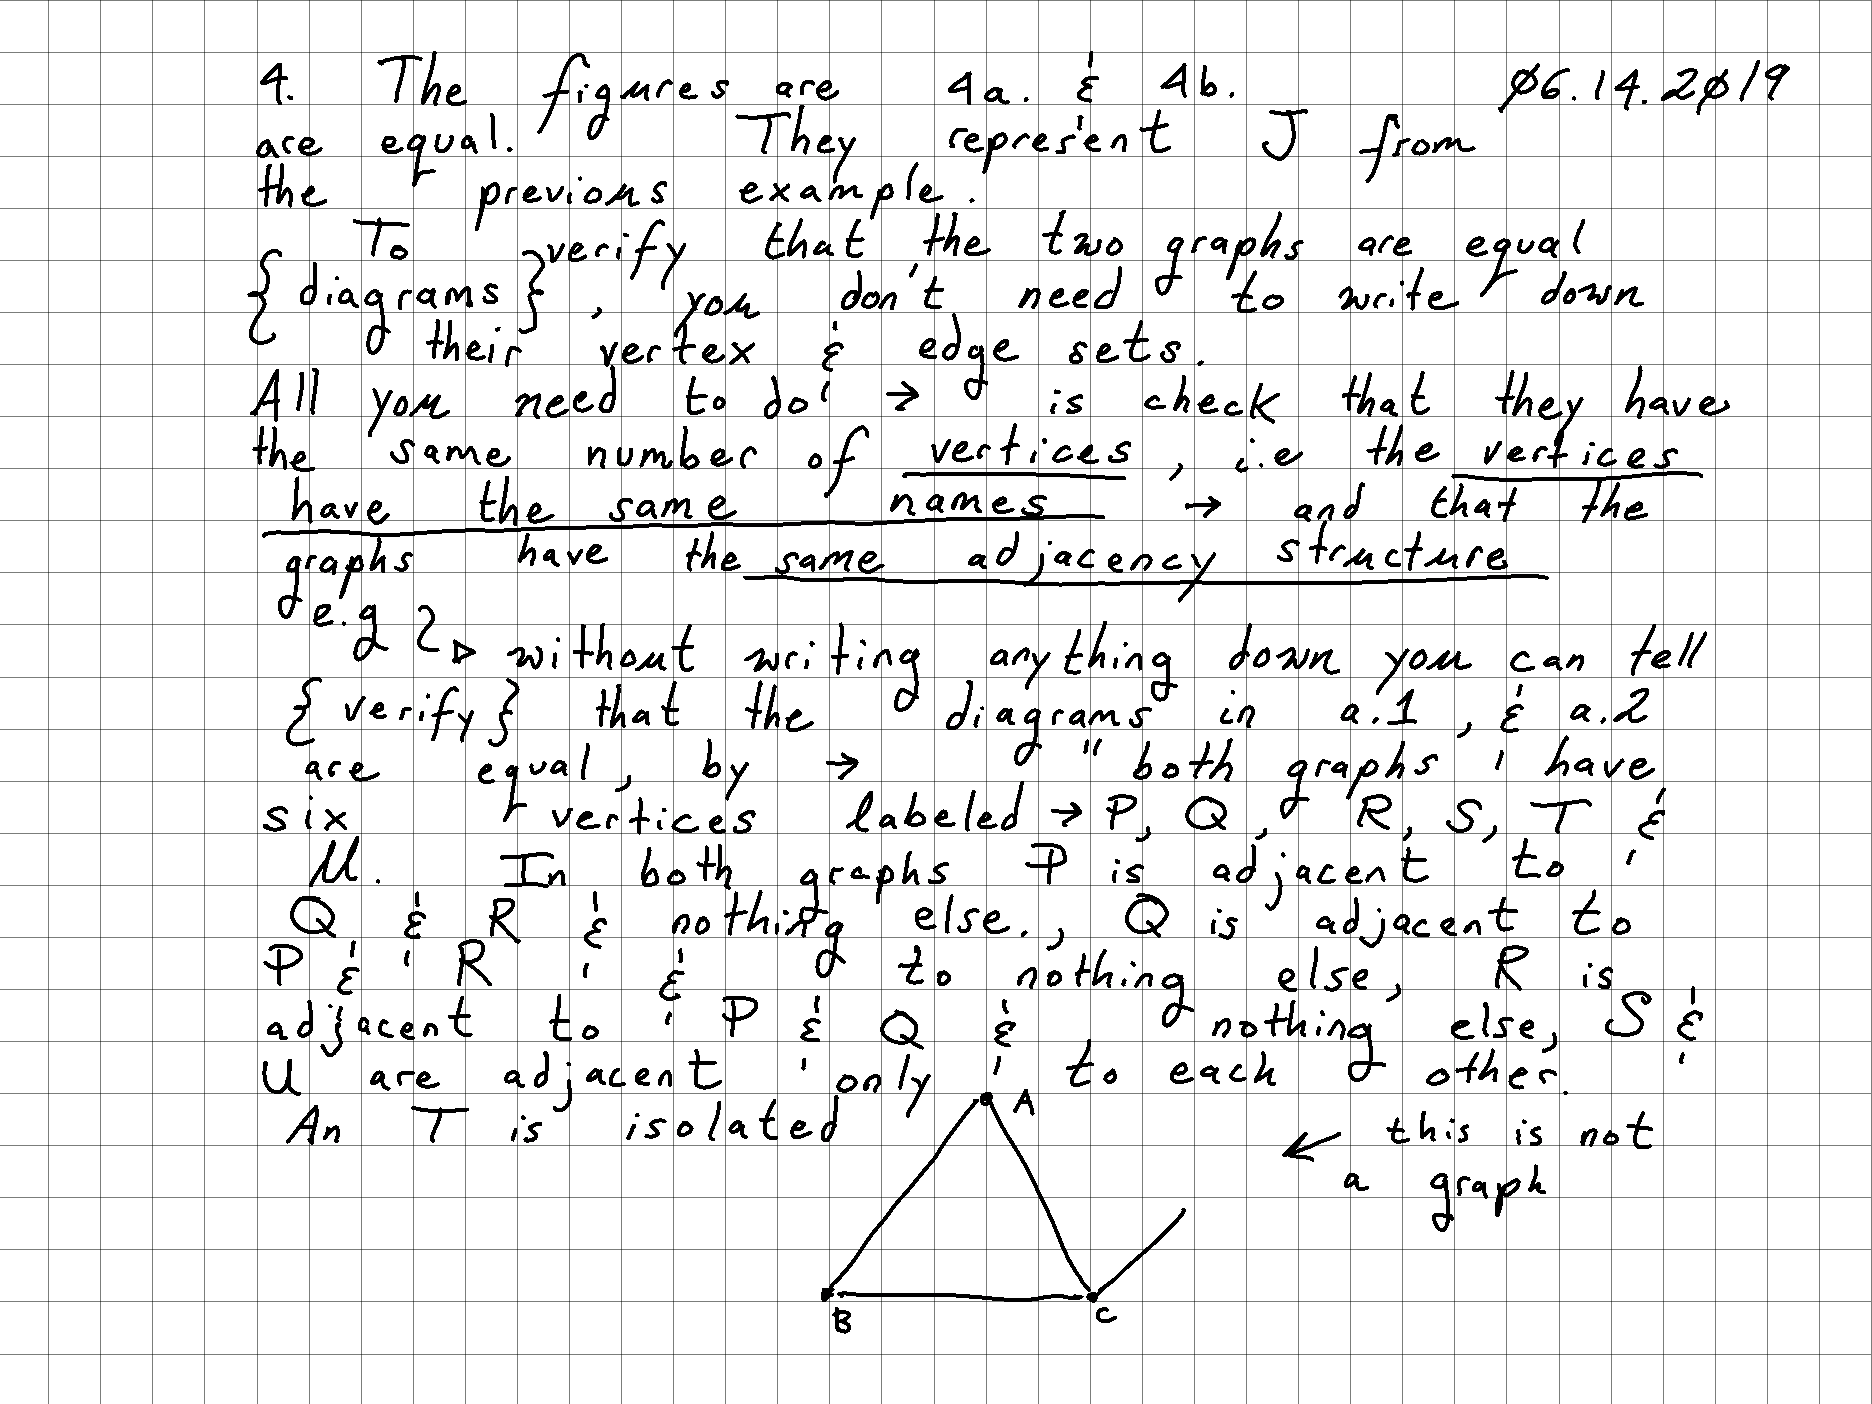 4. The figures are 4a. & 4b. 06.14.2019
are equal. They represent J from
the previous example.
To verify that the two graphs are equal
{diagrams}, you don't need to write down
their vertex & edge sets.
All you need to do → is check that they have
the same number of vertices, i.e the vertices
have the same names → and that the
graphs have the same adjacency structure
e.g without writing anything down you can tell
{verify} that the diagrams in a.1, & a.2
are equal, by → "both graphs have
six vertices labeled → P, Q, R, S, T &
U. In both graphs P is adjacent to
Q & R & nothing else., Q is adjacent to
P & R & to nothing else, R is
adjacent to P & Q & nothing else, S &
U are adjacent only to each other.
An T is isolated
A
← this is not
a graph
B
C